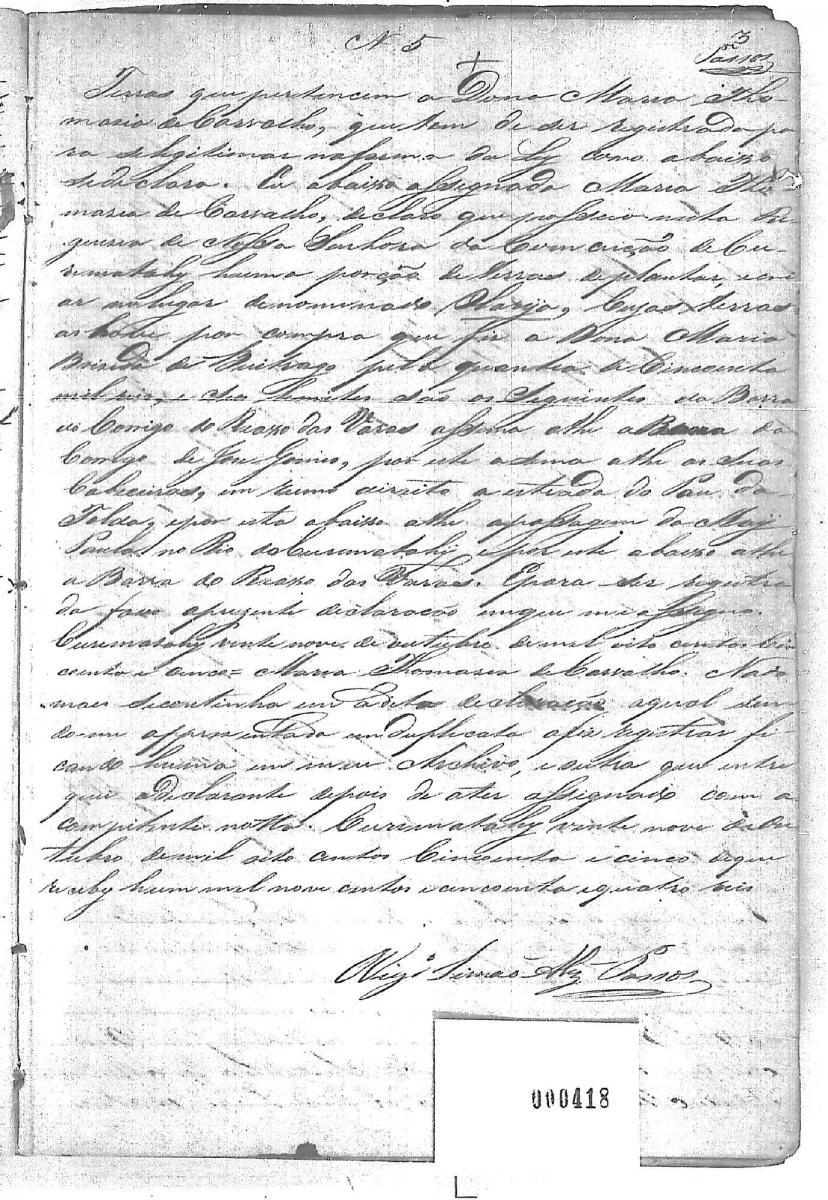 N 5
3
Passos
Terras que pertencem a Dona Maria Tho-
masia de Carvalho, que tem de ser registrada pa
ra se legitimar na forma da Ley como abaixo
se declara. Eu abaixo assignada Maria Tho
mazia de Carvalho, declaro que possuio nesta Fre
guesia de Nossa Senhora da Conceição de Cu-
rematahy huma porção de terras de plantar, e cri
ar no lugar denominado Cujas terras
as houve por compra que fiz a Dona Maria
de Buitrago pela quantia de Cincoenta
mil reis, e seo Lemites são os Seguintes da Barra
do Corrigo do Riaxo das Varas assima athe a Barra do
Corrigo de Jose Gomes, por este acima athe as suas
Cabeceiras, em rumo direito a estrada do Pau da
Tolda, e por esta abaixo athe a passagem da
Paula no Rio do Curumatahy e por este abaixo athe
a Barra do Riaxo das Varas. E para ser registra
da faço a prezente declaracao em que me assigno.
Curematahy vinte nove de outubro de mil oito centos cin
coenta e cinco = Maria Thomazia de Carvalho. Nada
mais se continha em a dita declaração aqual sen
do me appresentada em duplicata a fiz registrar fi-
cando huma em meu Archivo, e outra que entre
guei a declarante depois de a ter assignado com a
competente notta. Curimatahy vinte nove de Ou
tubro de mil oito centos Cincoenta e cinco de que
receby hum mil nove centos e cincoenta e quatro reis
Vigº Simão Alz Passos
000418